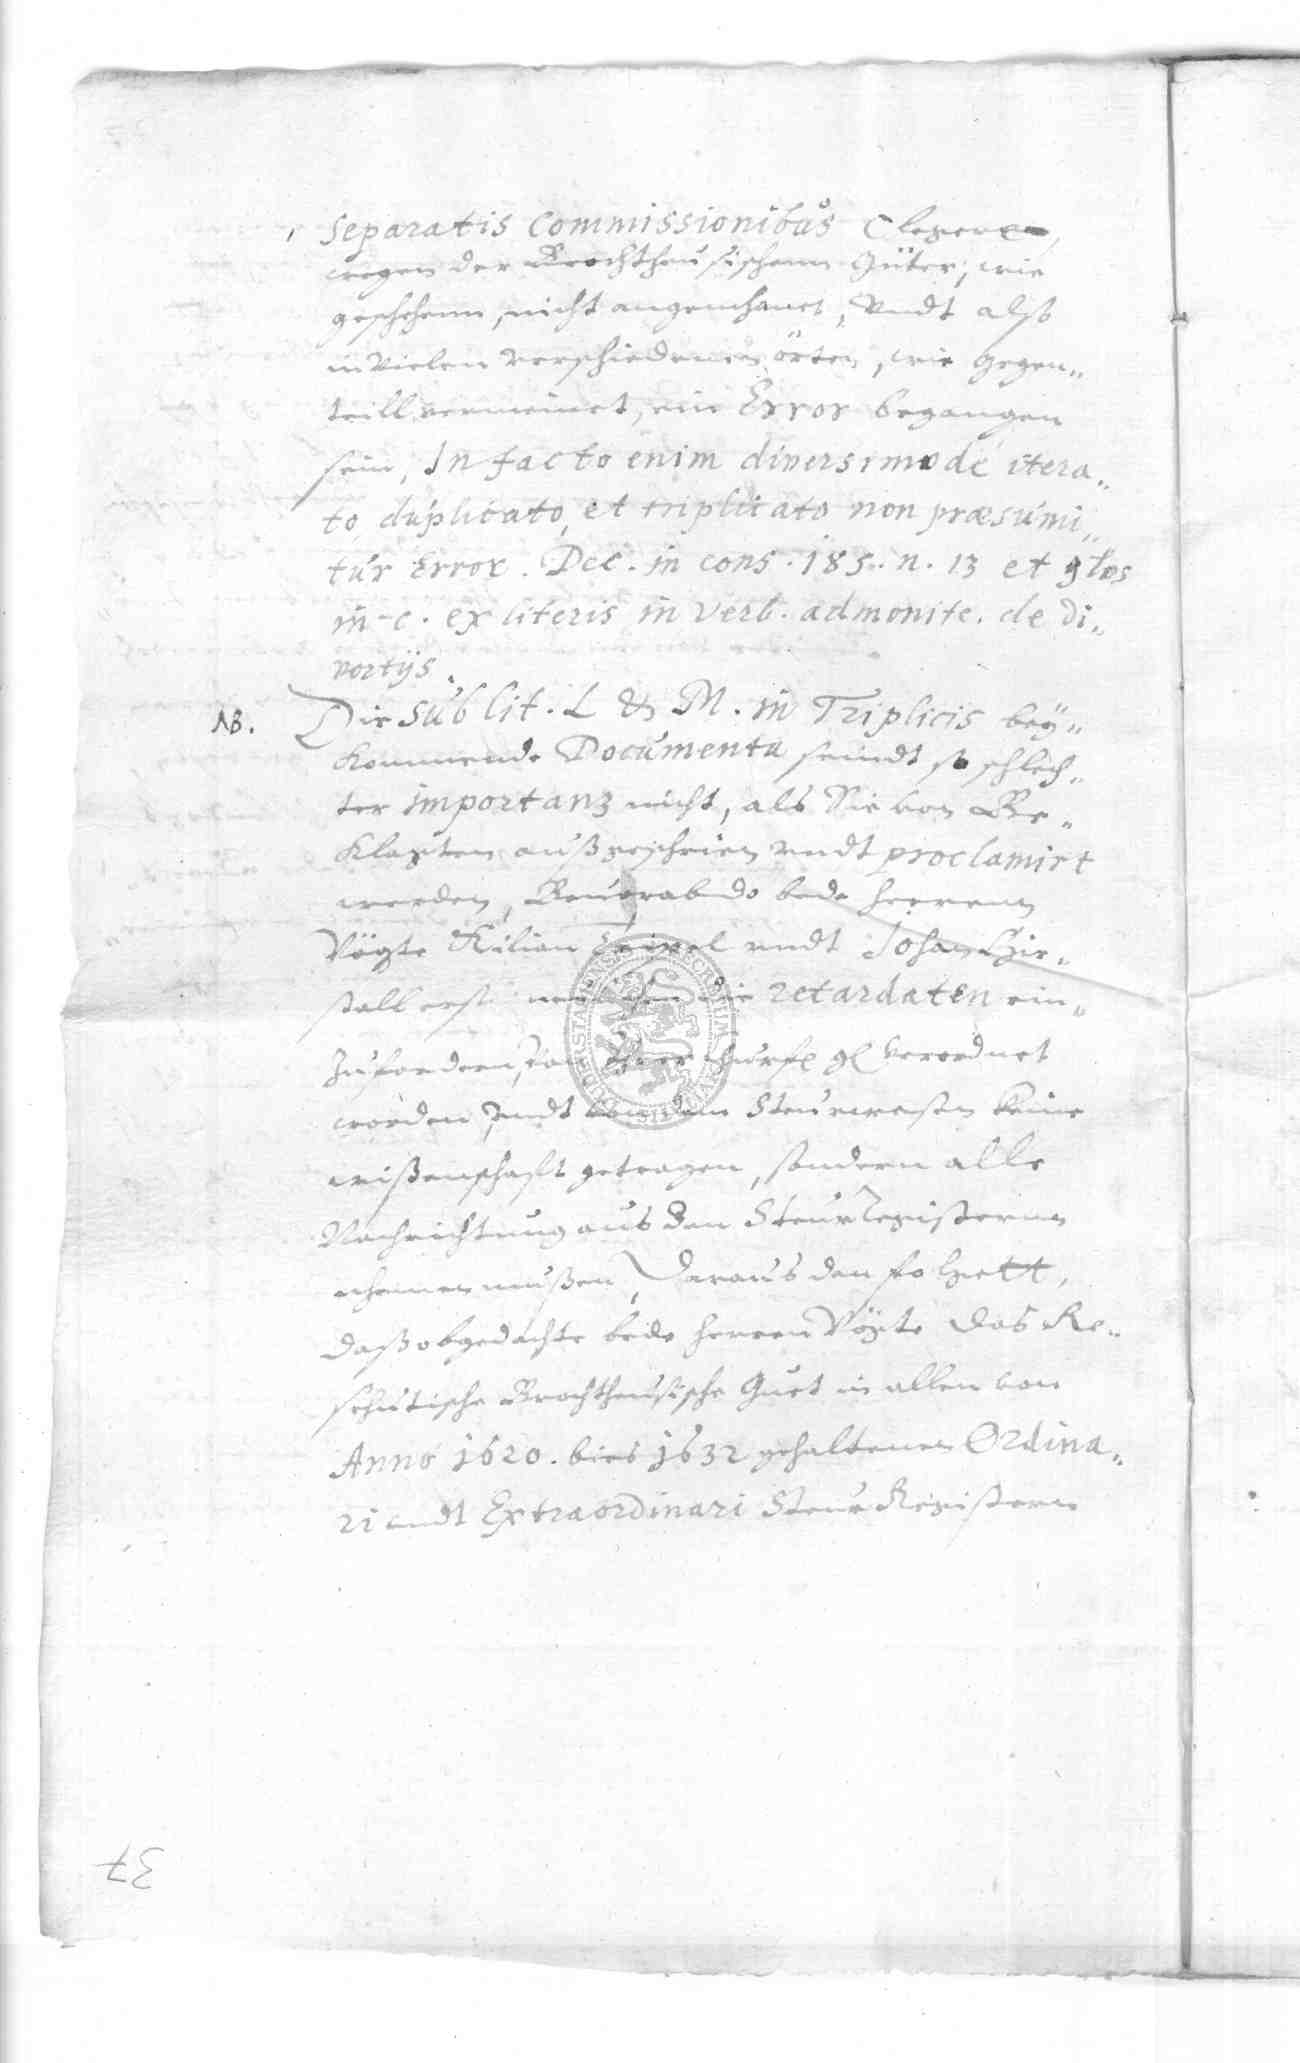 separatis Commissionibus Clegere,
wegen der Brochthausischenn Güter, wie
geschehenn, nicht angemhanet, Vndt also
in vielen verschiedenen örten, wie gegen„
teill vermeinet, ein Error begangen
sein, In facto enim diversimode itera„
to, duplicato, et triplicato non præsumi„
tur Error. Dec. in cons. 185. n. 13 et glos
in c. ex literis in verb. admonite. de di„
vortijs.
NB. Die sub lit. L & M. in Triplicis bey„
kommende Documenta seindt so schlech„
ter importanz nicht, als Sie von Be„
klagten außgeschrien vndt proclamirt
werden, bede herrenn
Vögte Kilian vndt Johan
erst die retardaten ein„
zufordern, Churf gl verordnet
worden, vndt von dem Steurwesen keine
wißenschafft getragen, sondern alle
Nachrichtung aus den Steur Registernn
nhemen mußen, Daraus dan folgett,
daß obgedachte bede herren Vögte das Re„
schutische Brochthausische Guet in allen von
Anno 1620. bies 1632 gehaltenen Ordina„
ri vndt Extraordinari Steur Registern
SIGILLUM
37